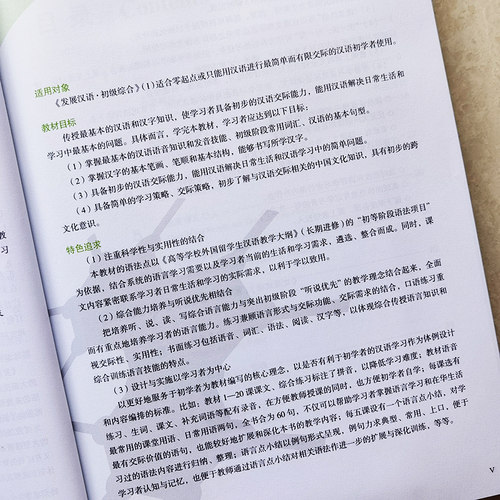 适用对象
《发展汉语·初级综合》(1)适合零起点或只能用汉语进行最简单而有限交际的汉语初学者使用。
教材目标
传授最基本的汉语和汉字知识，使学习者具备初步的汉语交际能力，能用汉语解决日常生活和
学习中最基本的问题。具体而言，学完本教材，学习者应达到以下目标：
（1）掌握最基本的汉语语音知识和发音技能、初级阶段常用词汇、汉语的基本句型。
（2）掌握汉字的基本笔画、笔顺和基本结构，能够书写所学汉字。
（3）具备初步的汉语交际能力，能用汉语解决日常生活和汉语学习中的简单问题。
（4）具备简单的学习策略、交际策略，初步了解与汉语交际相关的中国文化知识，具有初步的跨
文化意识。
特色追求
（1）注重科学性与实用性的结合
本教材的语法点以《高等学校外国留学生汉语教学大纲》（长期进修）的“初等阶段语法项目”
为依据，结合系统的语言学习需要以及学习者当前的生活和学习需求，遴选、整合而成。同时，课
文内容紧密联系学习者日常生活和学习的实际需求，以利于学以致用。
（2）综合能力培养与听说优先相结合
把培养听、说、读、写综合语言能力与突出初级阶段“听说优先”的教学理念结合起来，全面
而有重点地培养学习者的语言能力。练习兼顾语言形式与交际功能、交际需求的结合，口语练习重
视交际性、实用性；书面练习包括语音、词汇、语法、阅读、汉字等，以体现综合传授语言知识和
综合训练语言技能的特点。
（3）设计与实施以学习者为中心
以更好地服务于初学者为教材编写的核心理念，以是否有利于初学者的汉语学习作为体例设计
和内容编排的标准。比如：教材1—20课课文、综合练习标注了拼音，以降低学习难度；教材语音
练习、生词、课文、补充词语等配有录音，在方便教师授课的同时，也方便初学者自学；每课选有
最常用的课堂用语、日常用语两句，全书合为60句，不仅可以帮助学习者掌握语言学习和在华生活
最有交际价值的语句，也能较好地扩展和深化本书的教学内容；每五课设有一个语言点小结，对学
习过的语法内容进行归纳、整理；语言点小结以例句形式呈现，例句力求典型、常用、上口，便于
学习者认知与记忆，也便于教师通过语言点小结对相关语法作进一步的扩展与深化训练，等等。
V
教
习